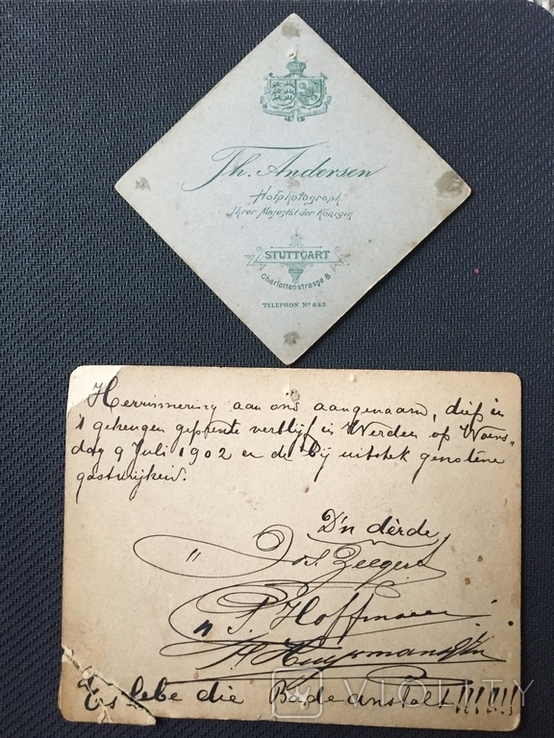 Th. Andersen
Hofphotograph
Ihrer Majestät der Königin
STUTTGART
Charlottenstrasse 8
TELEPHON No 643.
Herrinnering aan ons aangenaam, diep in
't geheugen geprente verblijf in Werden op Woens-
dag 9 Juli 1902 en de bij uitstek genotene
gastvrijheid.
D'n dèrde
" Jos. Zeegers
" P. Hoffmann
Huysmans
Es lebe die Badeanstalt!!!!!!
VIOLITY